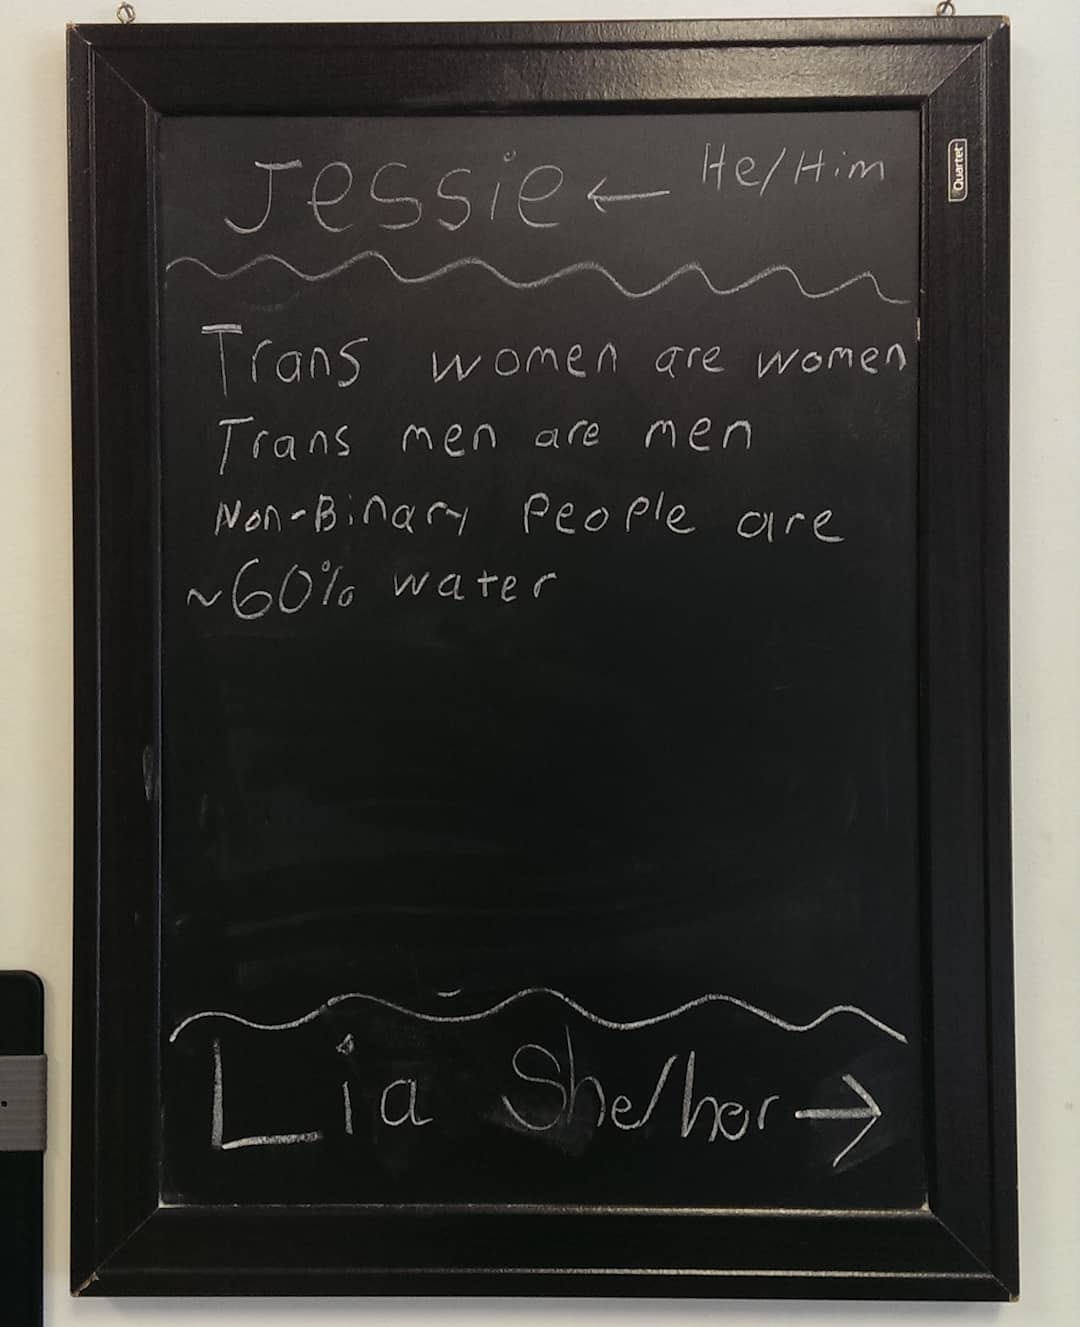 Jessie ← He/Him
Quartet
Trans women are women
Trans men are men
Non-Binary People are
~60% water
Lia She/her →